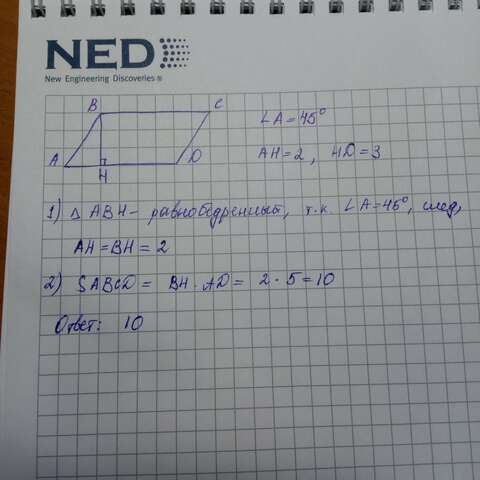 NED
New Engineering Discoveries ®
B C
∠A = 45°
A H D
AH = 2, HD = 3
1) Δ ABH - равнобедренный, т.к. ∠A = 45°, след,
AH = BH = 2
2) SABCD = BH · AD = 2 · 5 = 10
Ответ: 10